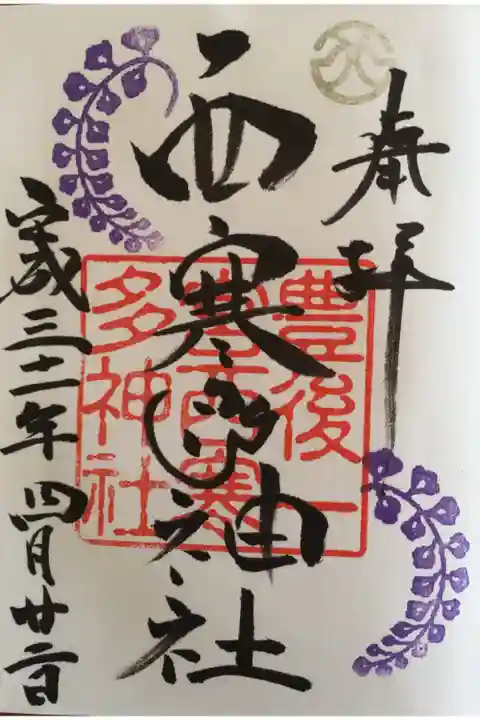 奉拝
西寒多神社
豊後一
宮西寒
多神社
平成三十一年四月廿二日